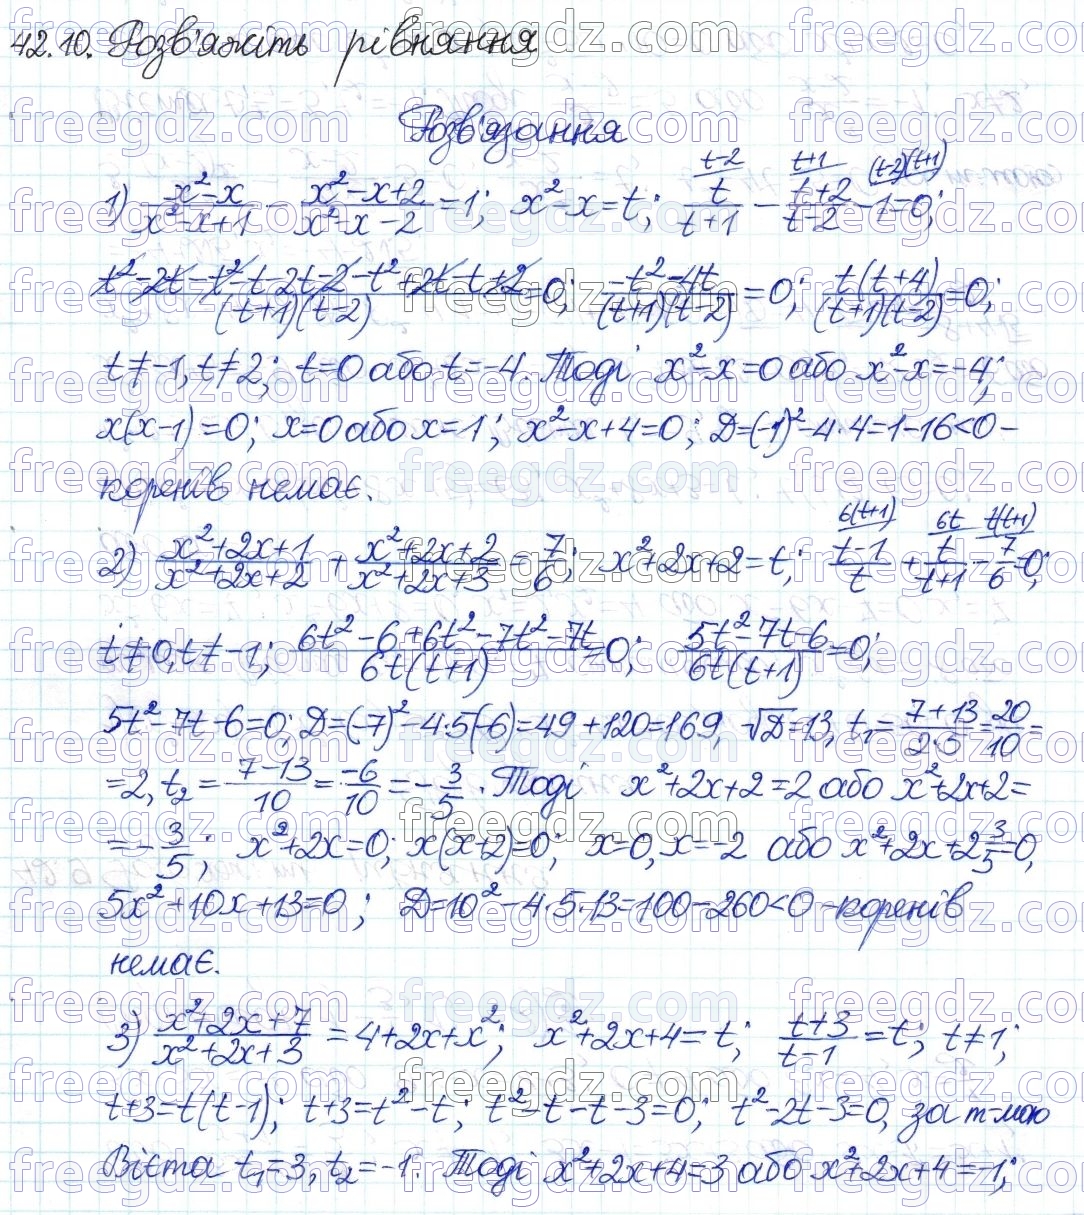 42.10. Розв'яжіть рівняння
Розв'язання
1) (x²-x)/(x²-x+1) - (x²-x+2)/(x²-x-2) = 1; x²-x=t; t/(t+1) - (t+2)/(t-2) - 1 = 0;
(t²-2t-t²-t-2t-2-t²+2t-t+2)/((t+1)(t-2)) = 0; (-t²-4t)/((t+1)(t-2)) = 0; t(t+4)/((t+1)(t-2)) = 0;
t≠-1, t≠2; t=0 або t=-4. Тоді x²-x=0 або x²-x=-4;
x(x-1)=0; x=0 або x=1; x²-x+4=0; D=(-1)²-4·4=1-16<0 -
коренів немає.
2) (x²+2x+1)/(x²+2x+2) + (x²+2x+2)/(x²+2x+3) = 7/6; x²+2x+2=t; (t-1)/t + t/(t+1) - 7/6 = 0;
t≠0, t≠-1; (6t²-6+6t²-7t²-7t)/(6t(t+1)) = 0; (5t²-7t-6)/(6t(t+1)) = 0;
5t²-7t-6=0; D=(-7)²-4·5(-6)=49+120=169, √D=13, t₁=(7+13)/(2·5)=20/10=
=2, t₂=(7-13)/10=-6/10=-3/5. Тоді x²+2x+2=2 або x²+2x+2=
=-3/5; x²+2x=0; x(x+2)=0; x=0, x=-2 або x²+2x+2 3/5=0,
5x²+10x+13=0; D=10²-4·5·13=100-260<0 - коренів
немає.
3) (x²+2x+7)/(x²+2x+3) = 4+2x+x²; x²+2x+4=t; (t+3)/(t-1)=t; t≠1;
t+3=t(t-1); t+3=t²-t; t²-t-t-3=0; t²-2t-3=0, за т-мою
Вієта t₁=3, t₂=-1. Тоді x²+2x+4=3 або x²+2x+4=-1;